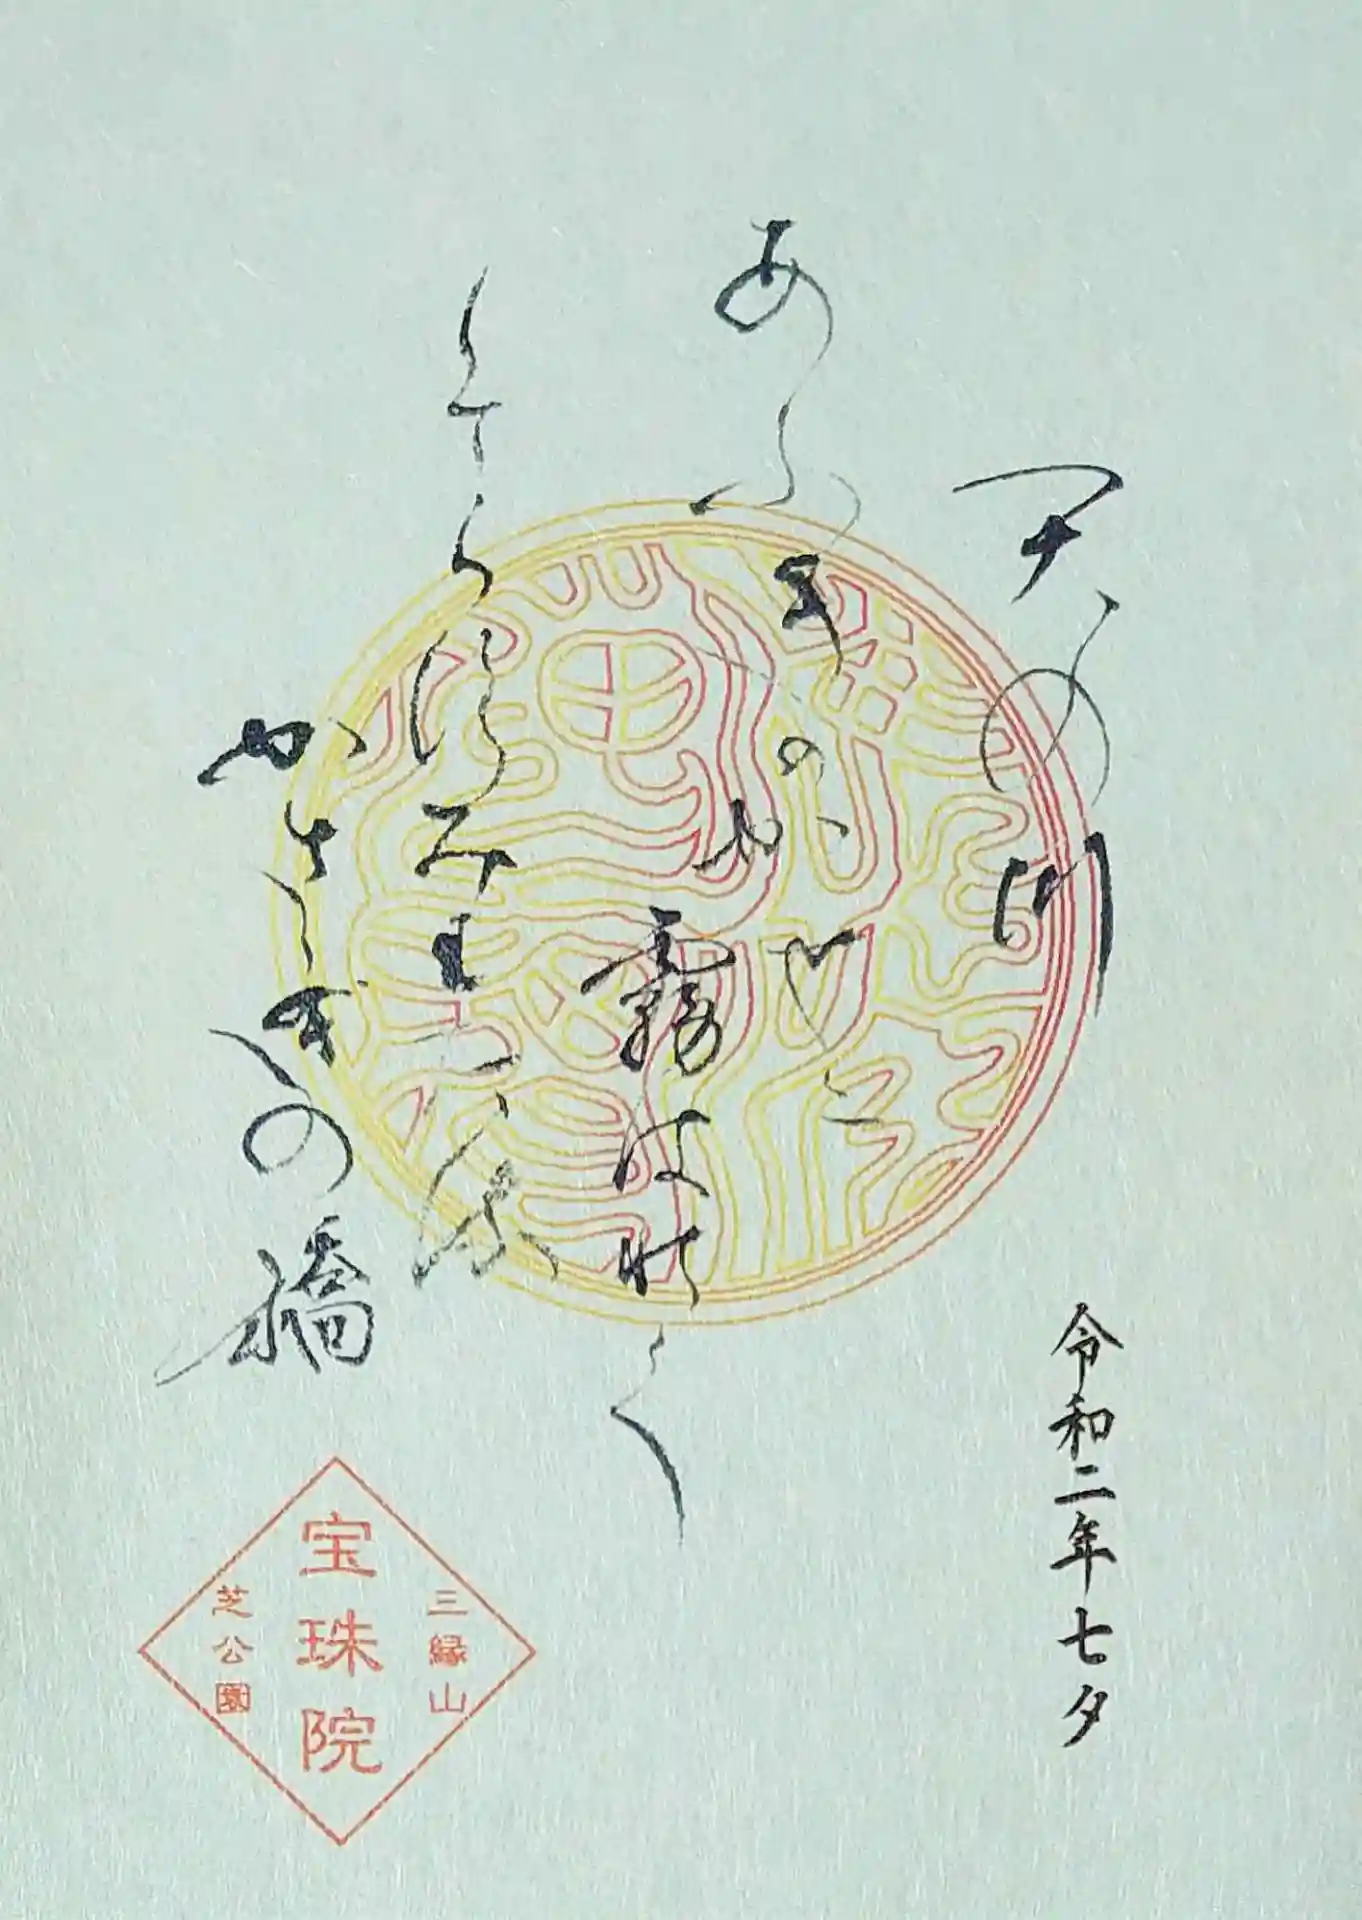 天の川
あふきのかせに
霧はれて
そらすみわたる
かさゝきの橋
令和二年七夕
三縁山
宝珠院
芝公園